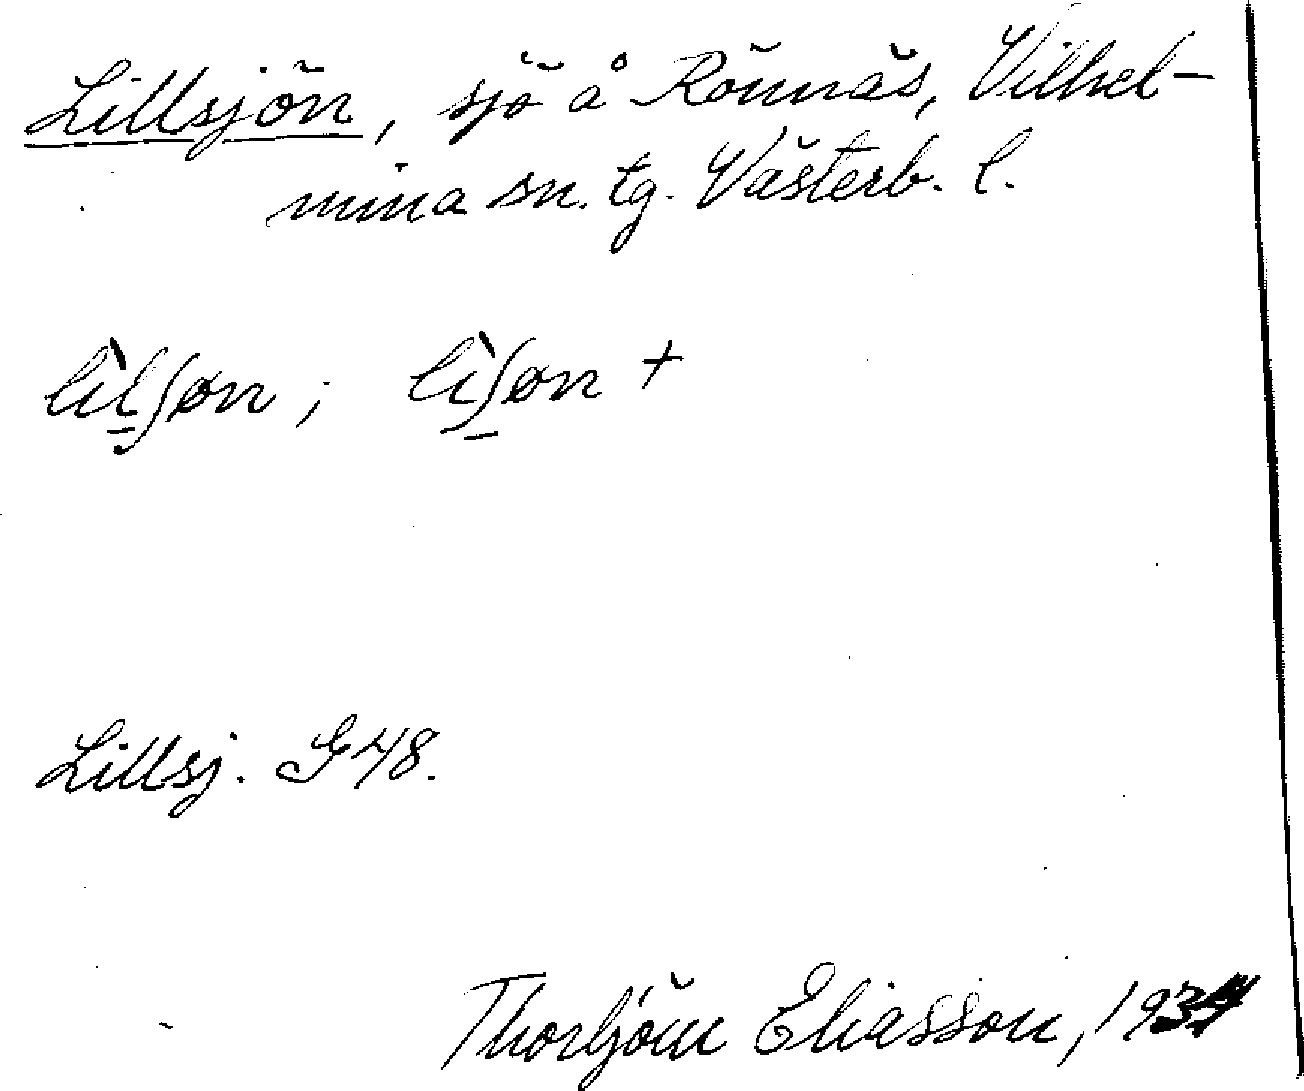 Lillsjön, sjö å Rönnäs, Vilhel-
mina sn. tg. Västerb. l.
lìlʃøn; lìʃøn +
Lillsj. G48.
Thorbjörn Eliasson,